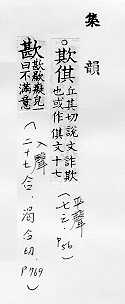 集韻
。欺倛丘其切說文詐欺
也或作倛文十七
(平聲
七之, P56)
歁
癡皃一
曰不滿意
(入聲
二十七合, 渴合切,
P769)